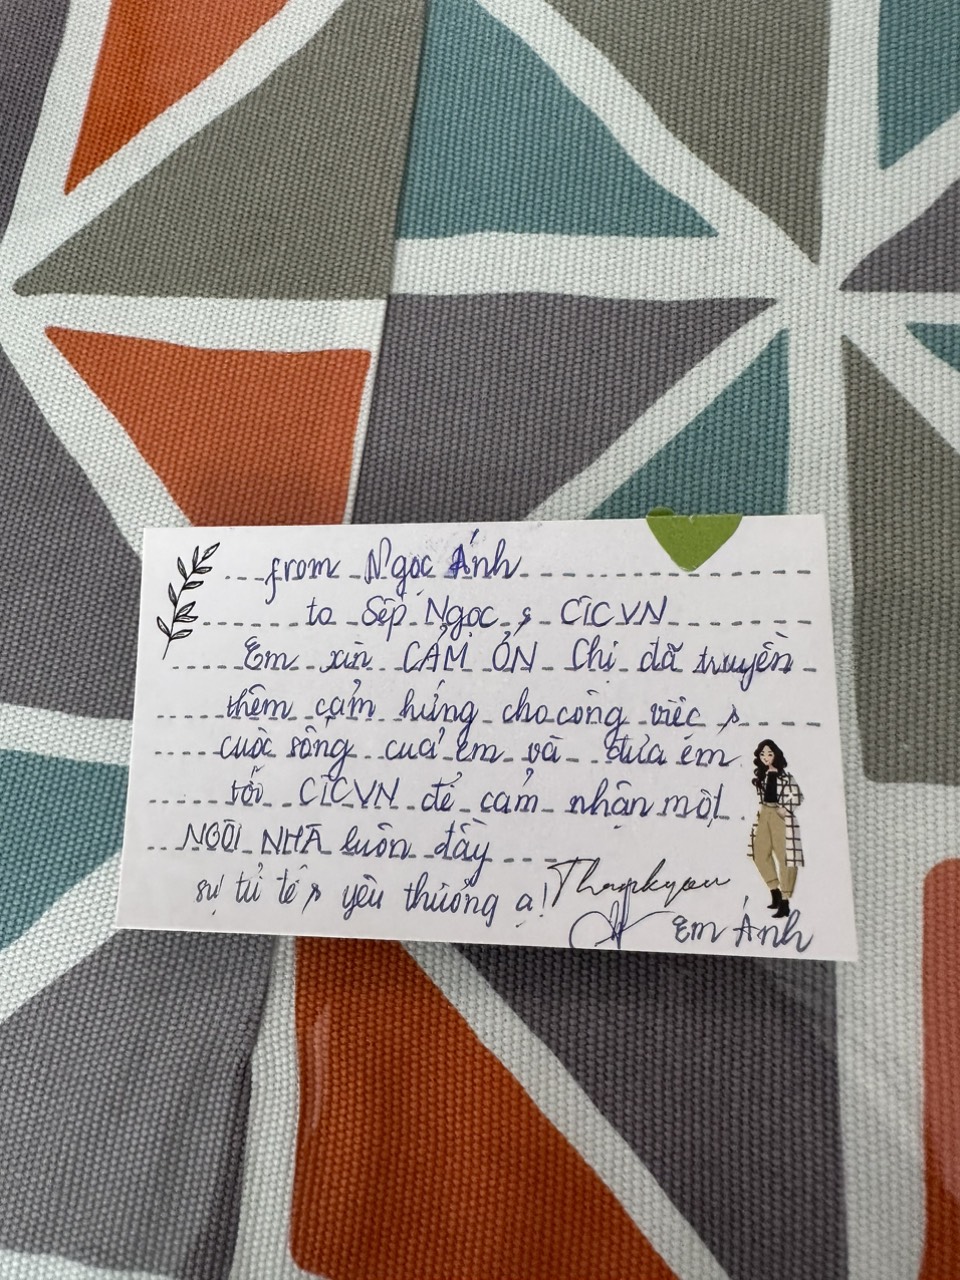 from Ngọc Ánh
to Sếp Ngọc & CICVN
Em xin CẢM ƠN Chị đã truyền
thêm cảm hứng cho công việc &
cuộc sống của em và đưa em
tới CICVN để cảm nhận một
NGÔI NHÀ luôn đầy
sự tử tế & yêu thương ạ!
Thankyou
Em Ánh